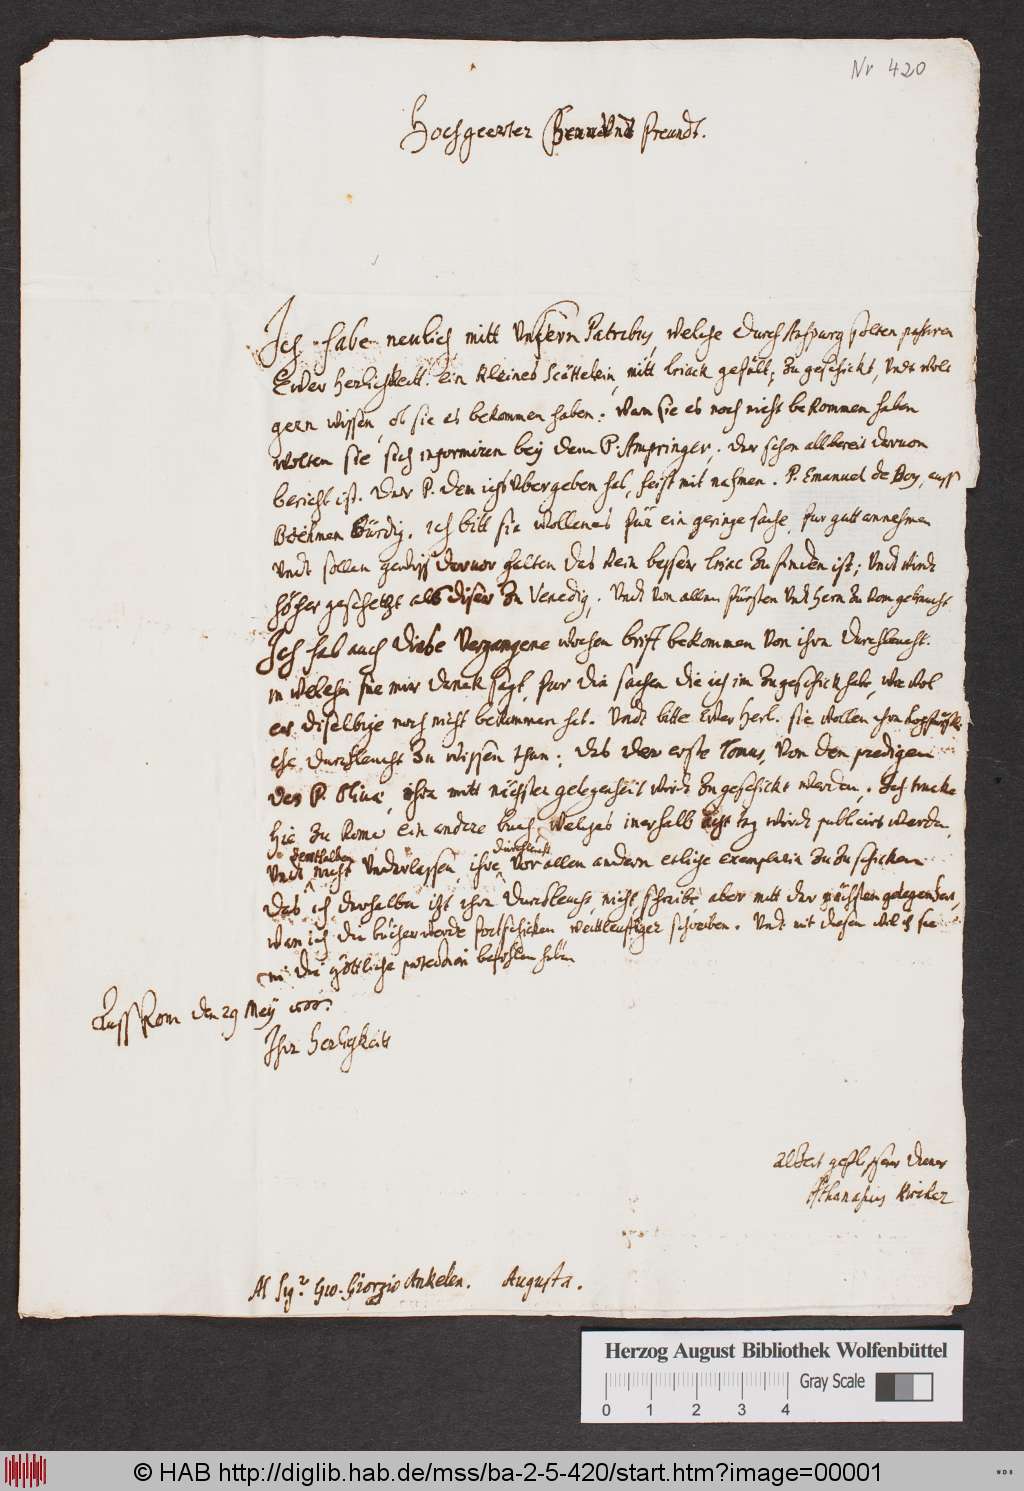 Nr 420
Hochgeerter Freundt.
Ich habe neulich mitt Unsern Patribus, welche durch Auspurg solten passiren
Ewer Herlichkeitt. ein kleines Scättelein, mitt triack gefült, zu geschickt, Undt wolt
gern wissen, ob sie es bekommen haben. wan sie es noch nicht bekommen haben
wolten sie sich informiren bey dem P. Ampringer. der schon allbereit daruon
bericht ist. der P. dem ichs Übergeben hab, heist mit nahmen. P. Emanuel de Boy, auss
Böehmen bürdig. ich bitt sie wollen es für ein geringe sache, fur gutt annehmen
Undt sollen gewiss daruor halten das kein besser triac zu finden ist; Undt wirdt
höher geschetzt als diser zu Venedig, Undt von allen fürsten Undt hern zu Rom gebraucht
Ich hab auch dise Vergangene wochen briff bekommen von ihrn durchleucht.
in welchen sie mir danck sagt, fur die sachen die ich im zugeschickt hab, wie wol
er diselbige noch nicht bekommen hat. Undt bitte Ewer Herl. sie wollen ihrn
che durchleucht zu wissen thun; das der erste Tomus, von den predigen
des P. Oliua, ihrn mitt nächster gelegenheit wirdt zugeschickt werden. Ich trucke
hie zu Rome ein andere buch, welches inerhalb acht tag wirdt publicirt werden,
Undt nicht Underlassen, ihre durchleucht vor allen andern etlige exemplarien zu zu schicken
das ich derhalben itzt ihrn durchleucht nicht schreibe aber mitt der nächsten gelegenheit,
wan ich die bücher werde fortschicken weittleuffiger schreiben. Undt mit diesen wil ich sie
in die göttliche protection befohlen haben
Auss Rom den 29 Mey
Ihr Herligkeitt
diener
Athanasius Kircher
Al Sigr Gio. Giorgio Ankelen. Augusta.
Herzog August Bibliothek Wolfenbüttel
Gray Scale
0 1 2 3 4
© HAB http://diglib.hab.de/mss/ba-2-5-420/start.htm?image=00001
WDB